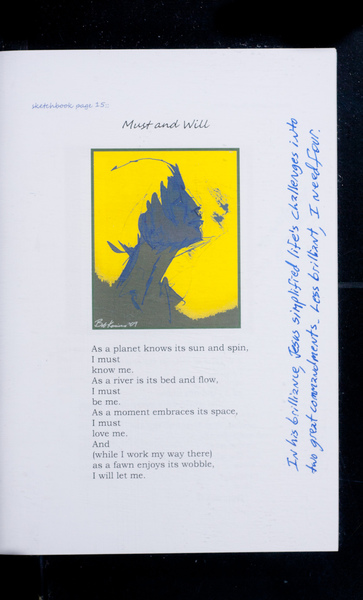 sketchbook page 15:
Must and Will
As a planet knows its sun and spin,
I must
know me.
As a river is its bed and flow,
I must
be me.
As a moment embraces its space,
I must
love me.
And
(while I work my way there)
as a fawn enjoys its wobble,
I will let me.
In his brilliance, Jesus simplified life's challenges into
two great commandments. Less brilliant, I need four.